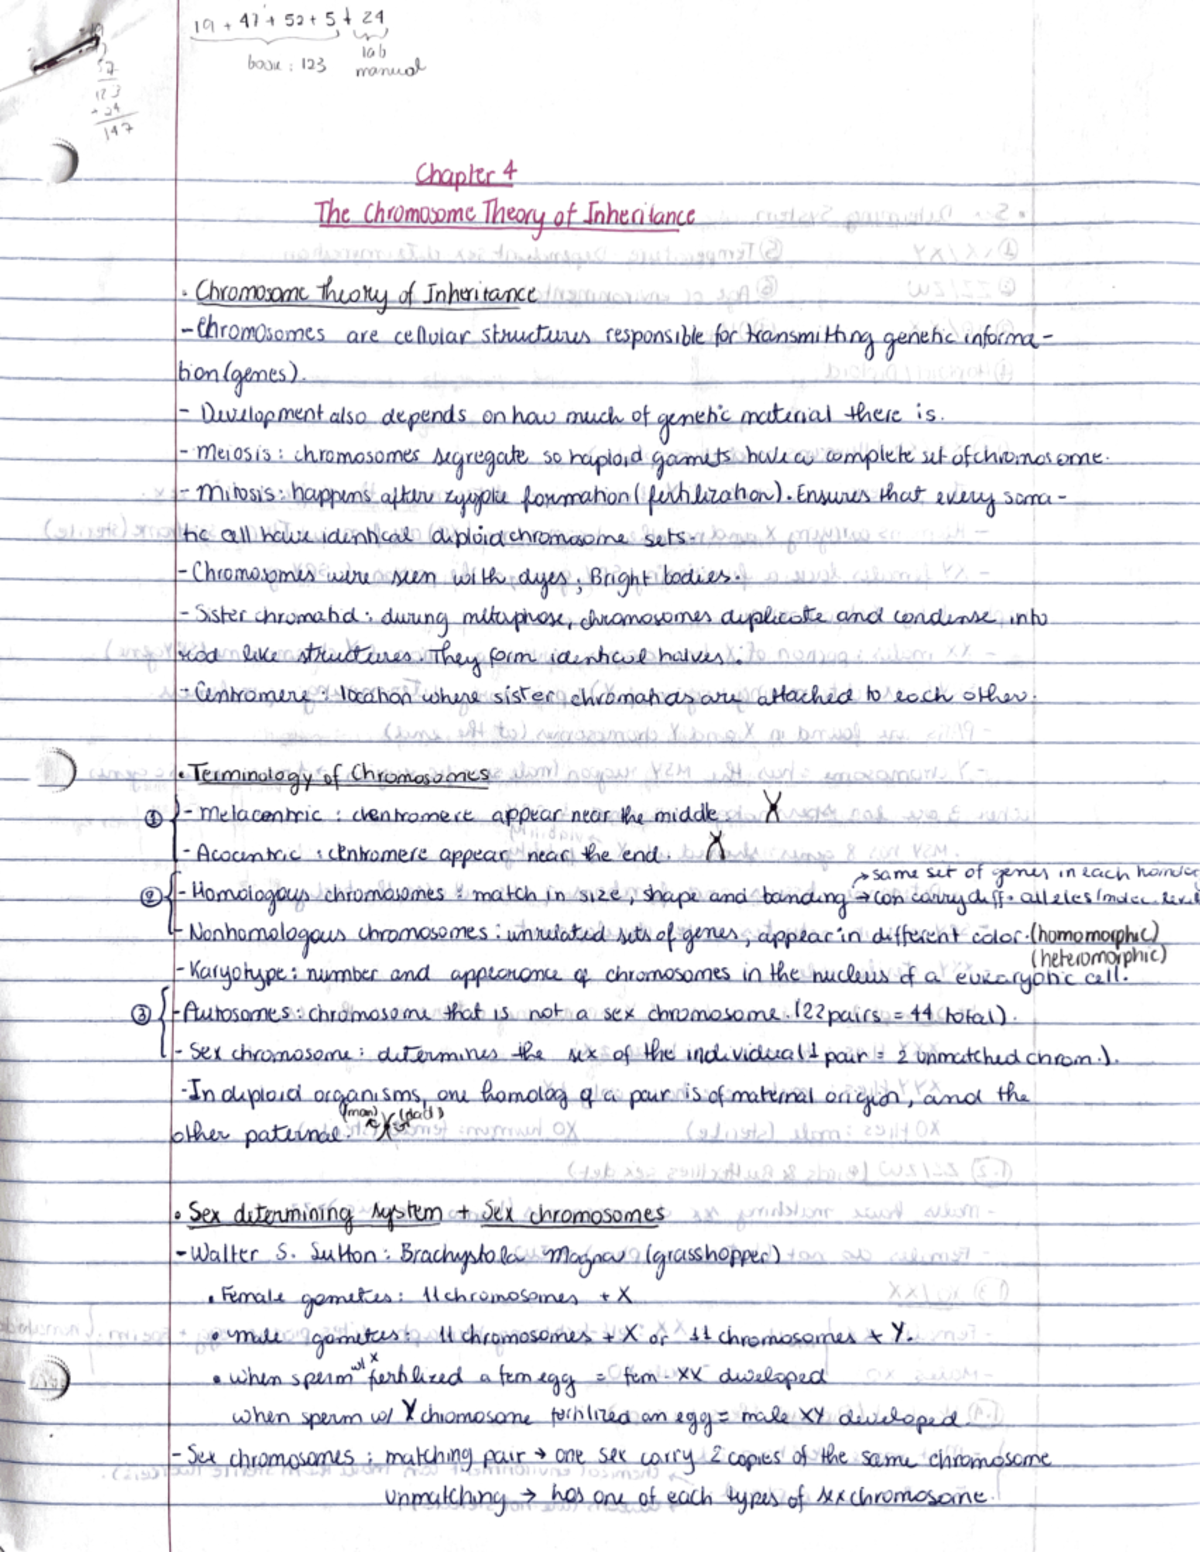 19 + 47 + 52 + 5 + 24
book : 123
lab
manual
123
+ 24
147
Chapter 4
The Chromosome Theory of Inheritance
· Chromosome Theory of Inheritance
- Chromosomes are cellular structures responsible for transmitting genetic informa-
tion (genes).
- Development also depends on how much of genetic material there is.
- Meiosis : chromosomes segregate so haploid gamets have a complete set of chromosome.
- Mitosis : happens after zygotic formation (fertilization). Ensures that every soma-
tic cell have identical diploid chromosome sets.
- Chromosomes were seen with dyes, Bright bodies.
- Sister chromatid : during metaphase, chromosomes duplicate and condense into
rod like structures. They form identical halves.
- Centromere : location where sister chromatids are attached to each other.
• Terminology of Chromosomes
① - Metacentric : centromere appear near the middle
- Acocentric : centromere appear near the end.
→ same set of genes in each
② - Homologous chromosomes : match in size, shape and banding → can carry diff. alleles/molec. level
- Nonhomologous chromosomes : unrelated sets of genes, appear in different color. (homomorphic)
(heteromorphic)
- Karyotype : number and appearance of chromosomes in the nucleus of a eukaryotic cell.
③ - Autosomes : chromosome that is not a sex chromosome. (22 pairs = 44 total).
- Sex chromosome : determines the sex of the individual (1 pair = 2 unmatched chrom.).
- In diploid organisms, one homolog of a pair is of maternal origin, and the
(mom) (dad)
other paternal.
• Sex determining system + Sex chromosomes
- Walter S. Sutton : Brachystola Magna (grasshopper)
• Female gametes : 11 chromosomes + X
• male gametes : 11 chromosomes + X or 11 chromosomes + Y.
• when sperm w/ X fertilized a fem egg = fem XX developed
when sperm w/ Y chromosome fertilized an egg = male XY developed.
- Sex chromosomes : matching pair → one sex carry 2 copies of the same chromosome
unmatching → has one of each types of sex chromosome.